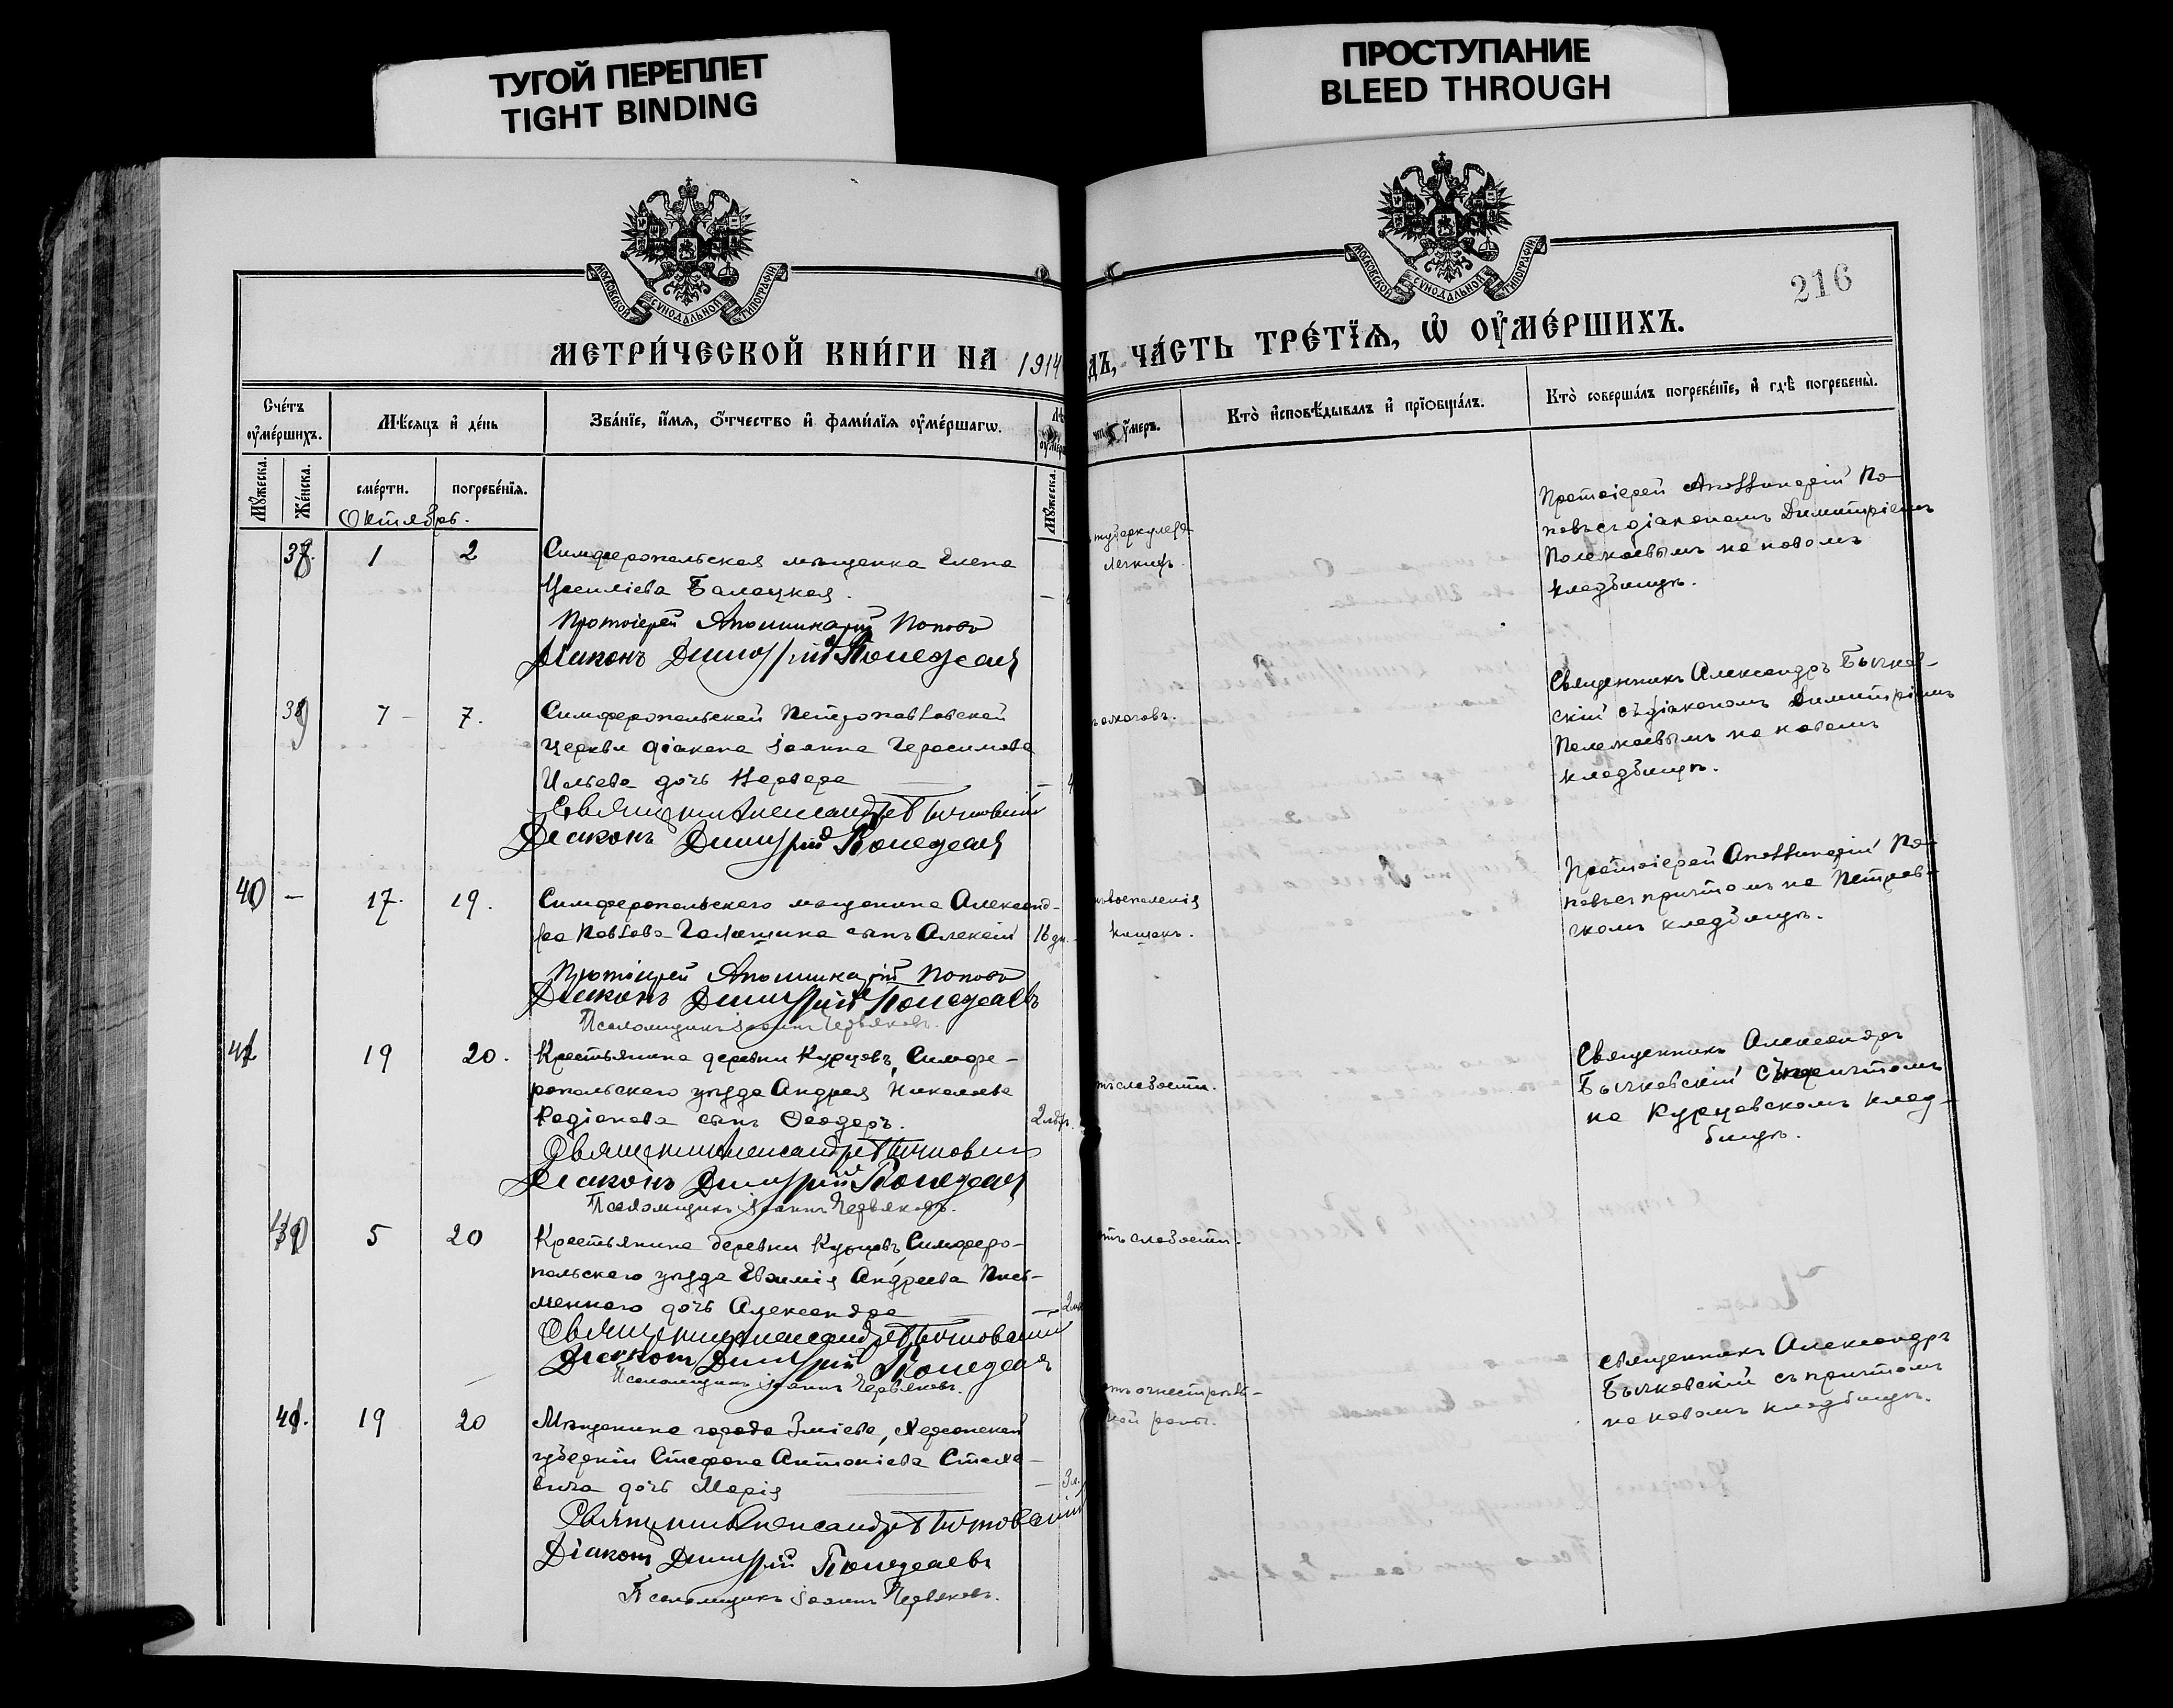 ТУГОЙ ПЕРЕПЛЕТ
TIGHT BINDING
ПРОСТУПАНИЕ
BLEED THROUGH
МОСКОВСКОЙ СѴНОДАЛЬНОЙ ТИПОГРАФІИ
МОСКОВСКОЙ СѴНОДАЛЬНОЙ ТИПОГРАФІИ
216
МЕТРИ́ЧЕСКОЙ КНИ́ГИ НА 1914
ДЪ, ЧА́СТЬ ТРЕ́ТЇѦ, Ѡ҆ ОУ҆МЕ́РШИХЪ.
Сче́тъ оу҆ме́ршихъ.
Мѣ́сяцъ и҆ де́нь
Зва́нїе, и҆́мѧ, ѻ҆́тчество и҆ фами́лїѧ оу҆ме́ршагѡ.
оу҆́меръ.
Кто̀ и҆сповѣ́дывалъ и҆ прїѻбща́лъ.
Кто̀ соверша́лъ погребе́нїе, и҆ гдѣ̀ погребены̀.
Мꙋ́жеска.
Же́нска.
сме́рти.
погребе́нїѧ.
Мꙋ́жеска.
Октябрь.
1 2 Симферопольская мѣщанка Елена
Балацкая.
Протоіерей Аполлинарій Поповъ
Діаконъ Димитрій Полежаевъ
туберкулеза
легкихъ.
Протоіерей Аполлинарій По-
повъ съ діакономъ Димитріемъ
Полежаевымъ на новомъ
кладбищѣ.
7 7. Симферопольской Петропавловской
церкви діакона Іоанна Герасимова
Ильева дочь Варвара
Священникъ Александръ Бычковскій
Діаконъ Димитрій Полежаевъ
ожоговъ.
Священникъ Александръ Бычков-
скій съ діакономъ Димитріемъ
Полежаевымъ на новомъ
кладбищѣ.
40 — 17. 19. Симферопольскаго мѣщанина Александ-
ра Павлова сынъ Алексій 16 дн.
Протоіерей Аполлинарій Поповъ
Діаконъ Димитрій Полежаевъ
Псаломщикъ Іоаннъ Червяковъ.
воспаленія
кишекъ.
Протоіерей Аполлинарій По-
повъ съ причтомъ на Петров-
скомъ кладбищѣ.
19 20. Крестьянина деревни Курцовъ, Симфе-
ропольскаго уѣзда Андрея Николаева
Родіонова сынъ Ѳеодоръ.
Священникъ Александръ Бычковскій
Діаконъ Димитрій Полежаевъ
Псаломщикъ Іоаннъ Червяковъ.
слабости.
Священникъ Александръ
Бычковскій съ причтомъ
на Курцовскомъ клад-
бищѣ.
5 20 Крестьянина деревни Курцовъ, Симферо-
польскаго уѣзда Евѳимія Андреева Пись-
меннаго дочь Александра
Священникъ Александръ Бычковскій
Діаконъ Димитрій Полежаевъ
Псаломщикъ Іоаннъ Червяковъ.
слабости.
41. 19 20 Мѣщанина города Зміева, Херсонской
губерніи Стефана Антоніева
дочь Марія
Священникъ Александръ Бычковскій
Діаконъ Димитрій Полежаевъ
Псаломщикъ Іоаннъ Червяковъ.
огнестрѣль-
ной раны.
Священникъ Александръ
Бычковскій съ причтомъ
на новомъ кладбищѣ.